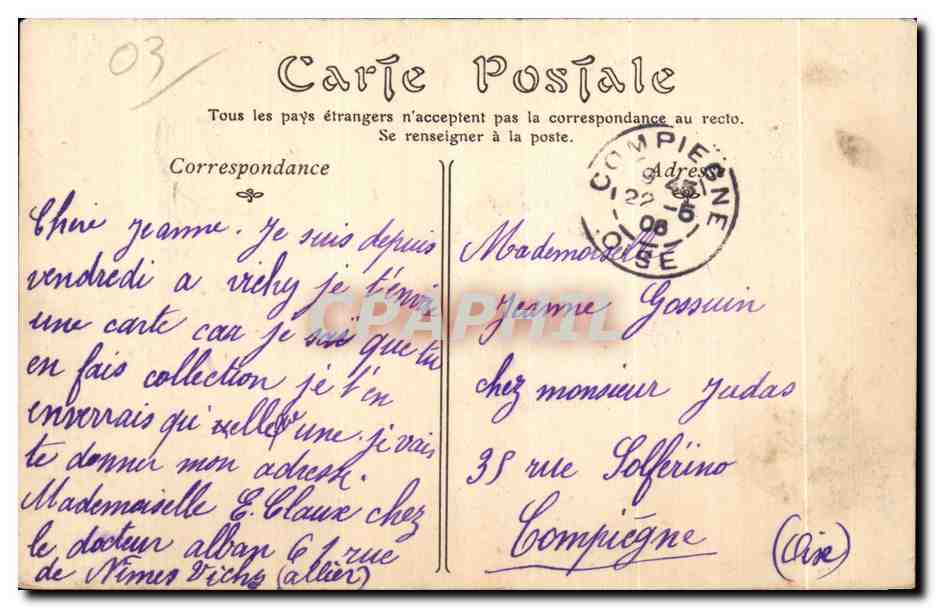 03
Carte Postale
Tous les pays étrangers n'acceptent pas la correspondance au recto.
Se renseigner à la poste.
Correspondance
Chère Jeanne. Je suis depuis
vendredi a vichy je t'envoie
une carte car je sui que tu
en fais collection je t'en
enverrais qui une. je vais
te donner mon adresse.
Mademoiselle E. Claux chez
le docteur alban 61 rue
de Nîmes Vichy (allier)
Adresse
COMPIEGNE
22 -5
06
OISE
Mademoiselle
Jeanne Gossuin
chez monsieur Judas
35 rue Solférino
Compiègne
(Oise)
CPAPHIL